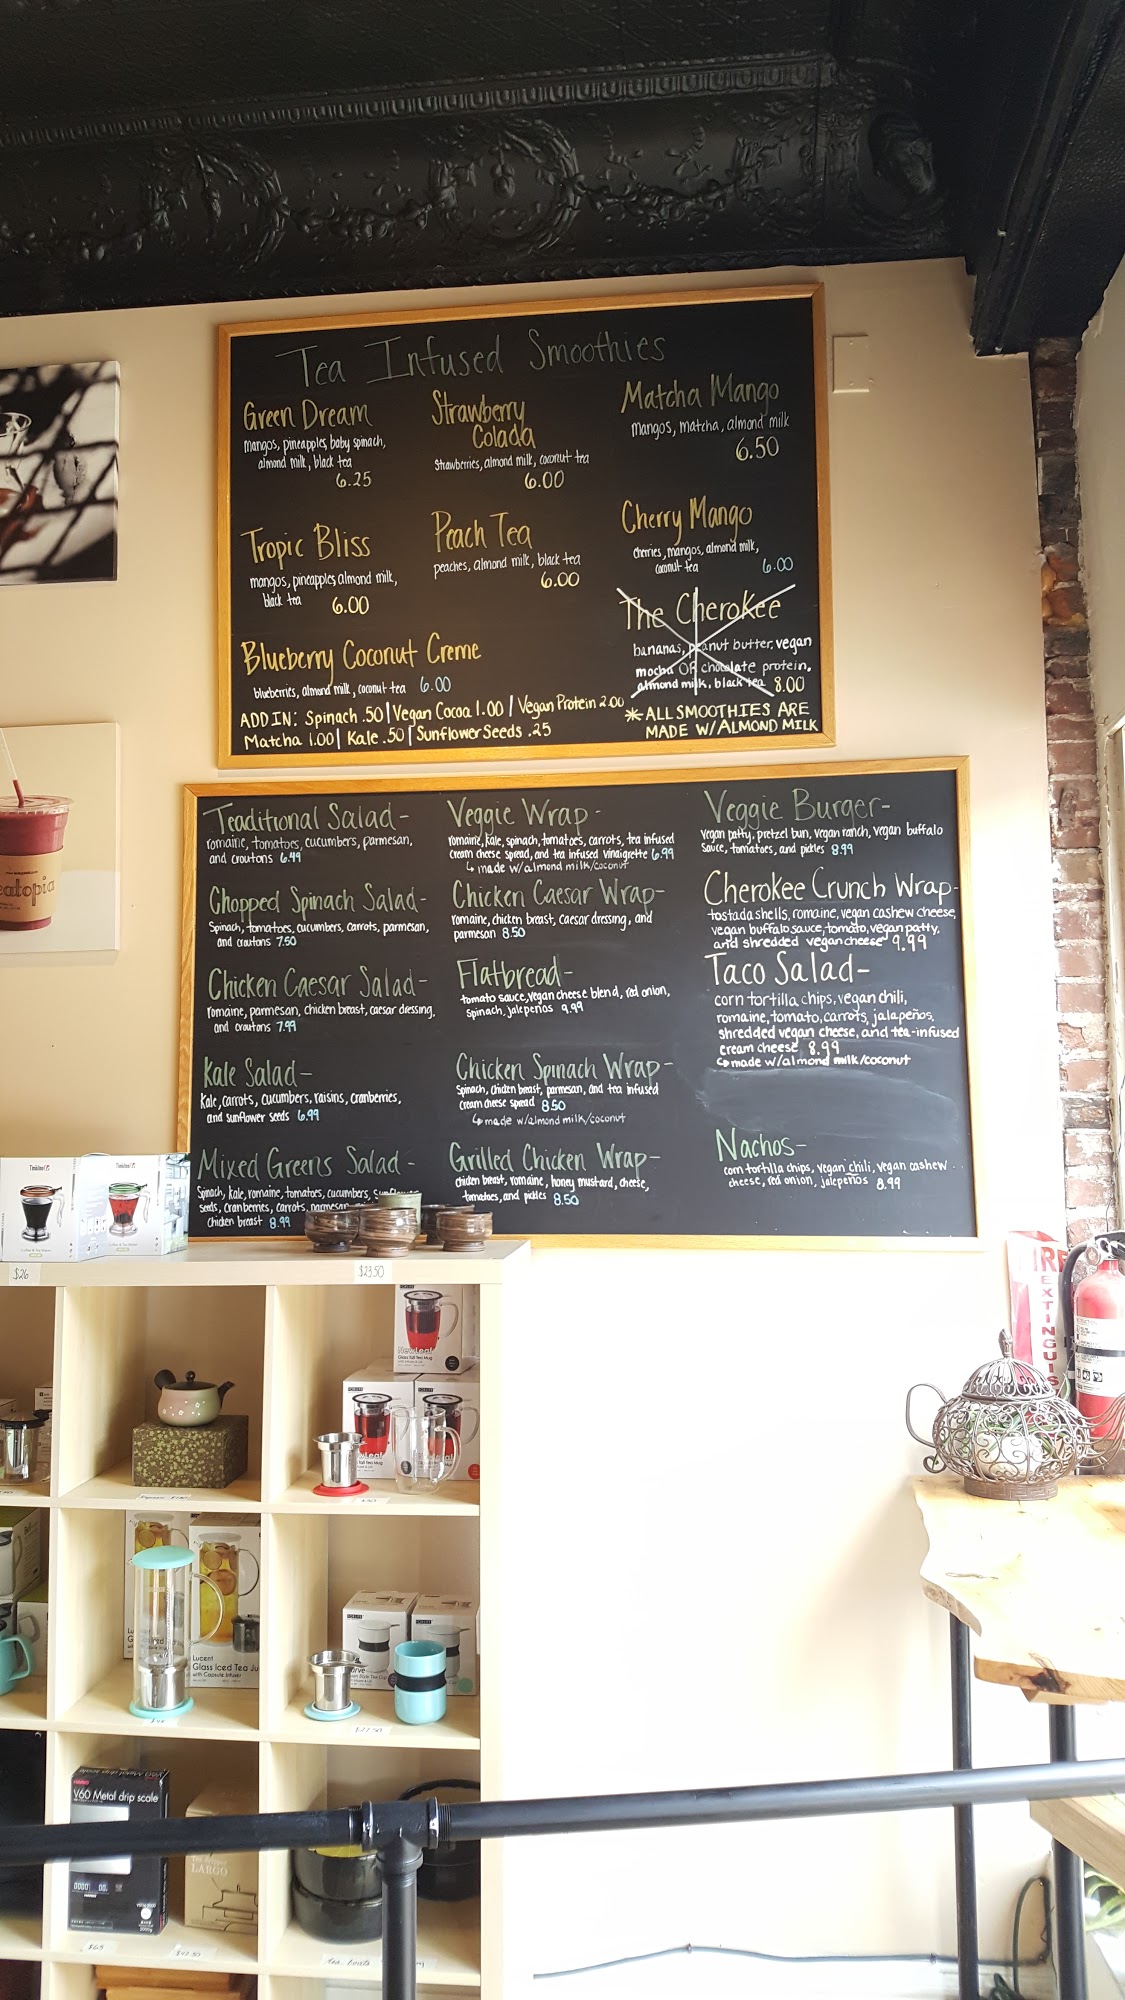 Tea Infused Smoothies
Green Dream
mangos, pineapples, baby spinach,
almond milk, black tea
6.25
Strawberry
Colada
strawberries, almond milk, coconut tea
6.00
Matcha Mango
mangos, matcha, almond milk
6.50
Tropic Bliss
mangos, pineapples, almond milk,
black tea 6.00
Peach Tea
peaches, almond milk, black tea
6.00
Cherry Mango
cherries, mangos, almond milk,
coconut tea 6.00
Blueberry Coconut Creme
blueberries, almond milk, coconut tea 6.00
The Cherokee
bananas, peanut butter, vegan
mocha OR chocolate protein,
almond milk, black tea 8.00
ADD IN: Spinach .50 | Vegan Cocoa 1.00 | Vegan Protein 2.00
Matcha 1.00 | Kale .50 | Sunflower Seeds .25
* ALL SMOOTHIES ARE
MADE W/ALMOND MILK
Teaditional Salad-
romaine, tomatoes, cucumbers, parmesan,
and croutons 6.49
Chopped Spinach Salad-
Spinach, tomatoes, cucumbers, carrots, parmesan,
and croutons 7.50
Chicken Caesar Salad-
romaine, parmesan, chicken breast, caesar dressing,
and croutons 7.99
Kale Salad-
Kale, carrots, cucumbers, raisins, cranberries,
and sunflower seeds 6.99
Mixed Greens Salad-
Spinach, kale, romaine, tomatoes, cucumbers, sunflower
seeds, cranberries, carrots, parmesan,
chicken breast 8.99
Veggie Wrap-
romaine, kale, spinach, tomatoes, carrots, tea infused
cream cheese spread, and tea infused vinaigrette 6.99
↳ made w/almond milk/coconut
Chicken Caesar Wrap-
romaine, chicken breast, caesar dressing, and
parmesan 8.50
Flatbread-
tomato sauce, vegan cheese blend, red onion,
spinach, jalepeños 9.99
Chicken Spinach Wrap-
Spinach, chicken breast, parmesan, and tea infused
cream cheese spread 8.50
↳ made w/almond milk/coconut
Grilled Chicken Wrap-
chicken breast, romaine, honey mustard, cheese,
tomatoes, and pickles 8.50
Veggie Burger-
vegan patty, pretzel bun, vegan ranch, vegan buffalo
sauce, tomatoes, and pickles 8.99
Cherokee Crunch Wrap-
tostada shells, romaine, vegan cashew cheese,
vegan buffalo sauce, tomato, vegan patty,
and shredded vegan cheese 9.99
Taco Salad-
corn tortilla chips, vegan chili,
romaine, tomato, carrots, jalapeños,
shredded vegan cheese, and tea-infused
cream cheese 8.99
↳ made w/almond milk/coconut
Nachos-
corn tortilla chips, vegan chili, vegan cashew
cheese, red onion, jalepeños 8.99
eatopia
$26
$23.50
FIRE
EXTINGUIS
NewLeaf
Glass Tall Tea Mug
Lucent
Glass Iced Tea Ju
with Capsule Infuser
$27.50
V60 Metal drip scale
$65
LARGO